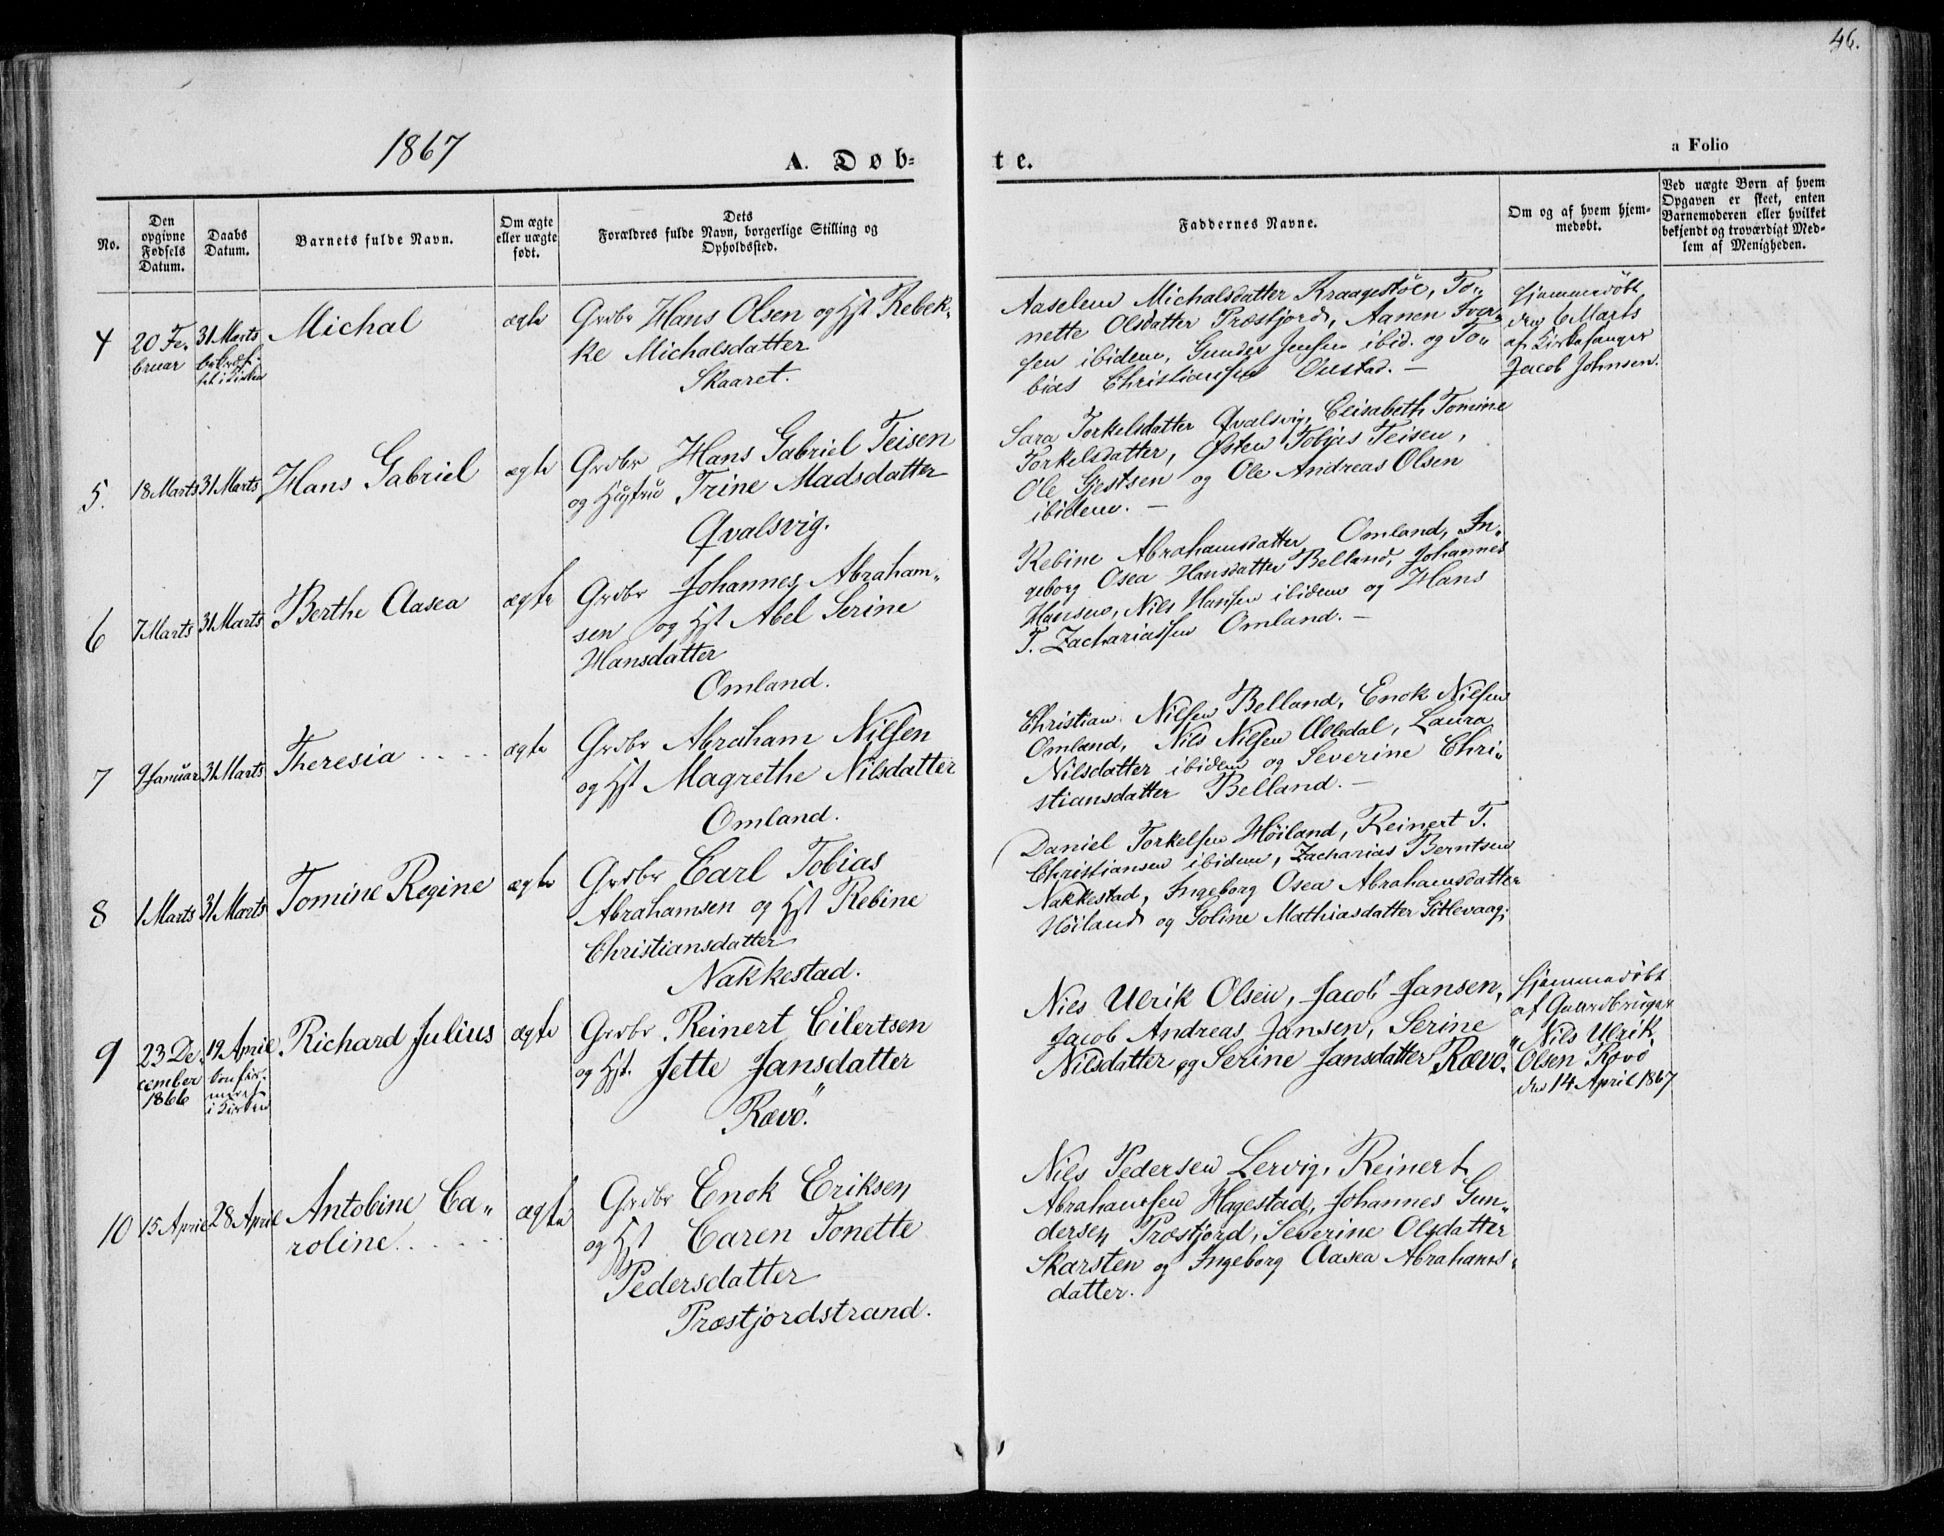 46.
1867
A. Døb-
te.
a Folio
No.
Den
opgivne
Fødsels
Datum.
Daabs
Datum.
Barnets fulde Navn.
Om ægte
eller uægte
født.
Dets
Forældres fulde Navn, borgerlige Stilling og
Opholdssted.
Faddernes Navne.
Om og af hvem hjem-
medøbt.
Ved uægte Børn af hvem
Opgaven er skeet, enten
Barnemoderen eller hvilket
bekjendt og troværdigt Med-
lem af Menigheden.
4
20 Fe-
bruar
31 Marts
i Kirken
Michal
ægte
Grdbr Hans Olsen og Hst Rebek-
ke Michalsdatter
Skaaret.
Aaselene Michalsdatter Kraagestøl, To-
nette Olsdatter Præstjord, Aanen Iver-
sen ibidem, Gunder Jensen ibid. og To-
bias Christiansen Oustad. —
hjemmedøbt
den 6 Marts
af Kirkesanger
Jacob Johnsen.
5.
18 Marts
31 Marts
Hans Gabriel
ægte
Grdbr Hans Gabriel Teisen
og Hustrue Trine Madsdatter
Qvalsvig.
Sara Torkelsdatter Qvalsvig, Elisabeth Tomine
Torkelsdatter, Østen Tobias Teisen,
Ole Gjestsen og Ole Andreas Olsen
ibidem. —
6
7 Marts
31 Marts
Berthe Aasea
ægte
Grdbr Johannes Abraham-
sen og Hst Abel Serine
Hansdatter
Omland.
Rebine Abrahamsdatter Omland, In-
geborg Osea Hansdatter Belland, Johannes
Hansen, Nils Hansen ibidem og Hans
T. Zachariassen Omland. —
7
9 Januar
31 Marts
Theresia . . . .
ægte
Grdbr Abraham Nilsen
og Hst Magrethe Nilsdatter
Omland.
Christian Nilsen Belland, Enok Nilsen
Omland, Nils Nilsen, Laura
Nilsdatter ibidem og Severine Chri-
stiansdatter Belland. —
8
1 Marts
31 Marts
Tomine Regine
ægte
Grdbr Carl Tobias
Abrahamsen og Hst Rebine
Christiansdatter
Nakkestad.
Daniel Torkelsen Høiland, Reinert T.
Christiansen ibidem, Zacharias Berntsen
Nakkestad, Ingeborg Osea Abrahamsdatter
Høiland og Goline Mathiasdatter Sitlevaag.
9
23 De-
cember
1866
19 April
i Kirken
Richard Julius
ægte
Grdbr Reinert Eilertsen
og Hst. Jette Jansdatter
Rævø.
Nils Ulrik Olsen, Jacob Jansen,
Jacob Andreas Jansen, Serine
Nilsdatter og Serine Jansdatter Rævø.
hjemmedøbt
af Gaardbruger
Nils Ulrik
Olsen Rævø
den 14 April 1867
10
15 April
28 April
Antobine Ca-
roline. . . . .
ægte
Grdbr Enok Eriksen
og Hst Caren Tonette
Pedersdatter
Præstjordstrand.
Nils Pedersen Lervig, Reinert
Abrahamsen Hagestad, Johannes Gun-
dersen Præstjord, Severine Olsdatter
Skarsten og Ingeborg Aasea Abrahams-
datter.